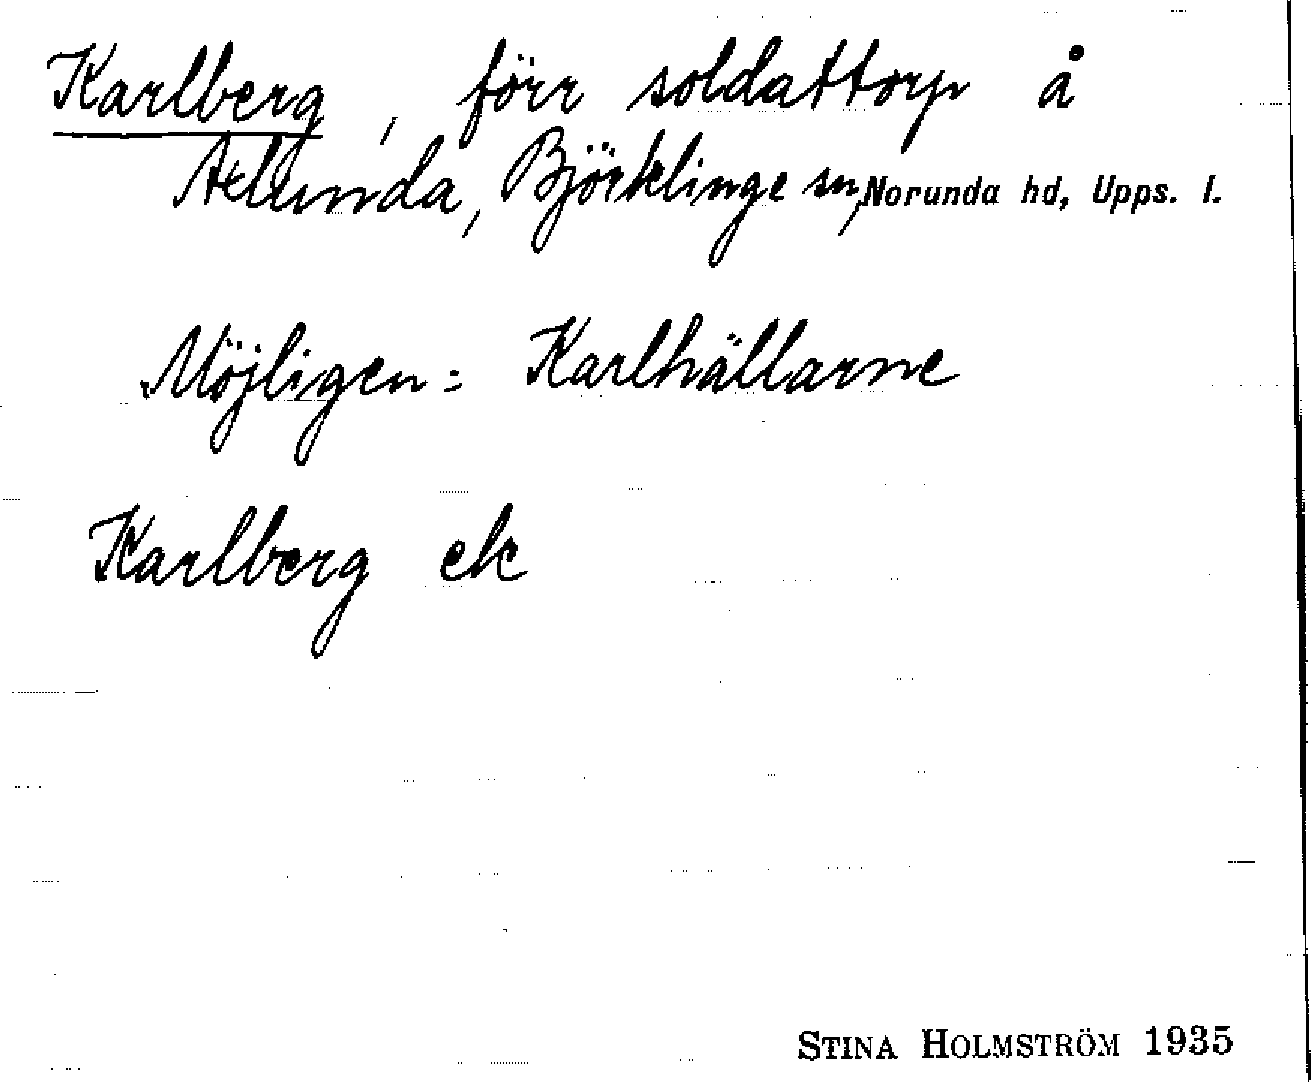 Karlberg, förr soldattorp å
Åklunda, Björklinge sn, Norunda hd, Upps. l.
Möjligen = Karlhällarne
Karlberg ek
STINA HOLMSTRÖM 1935